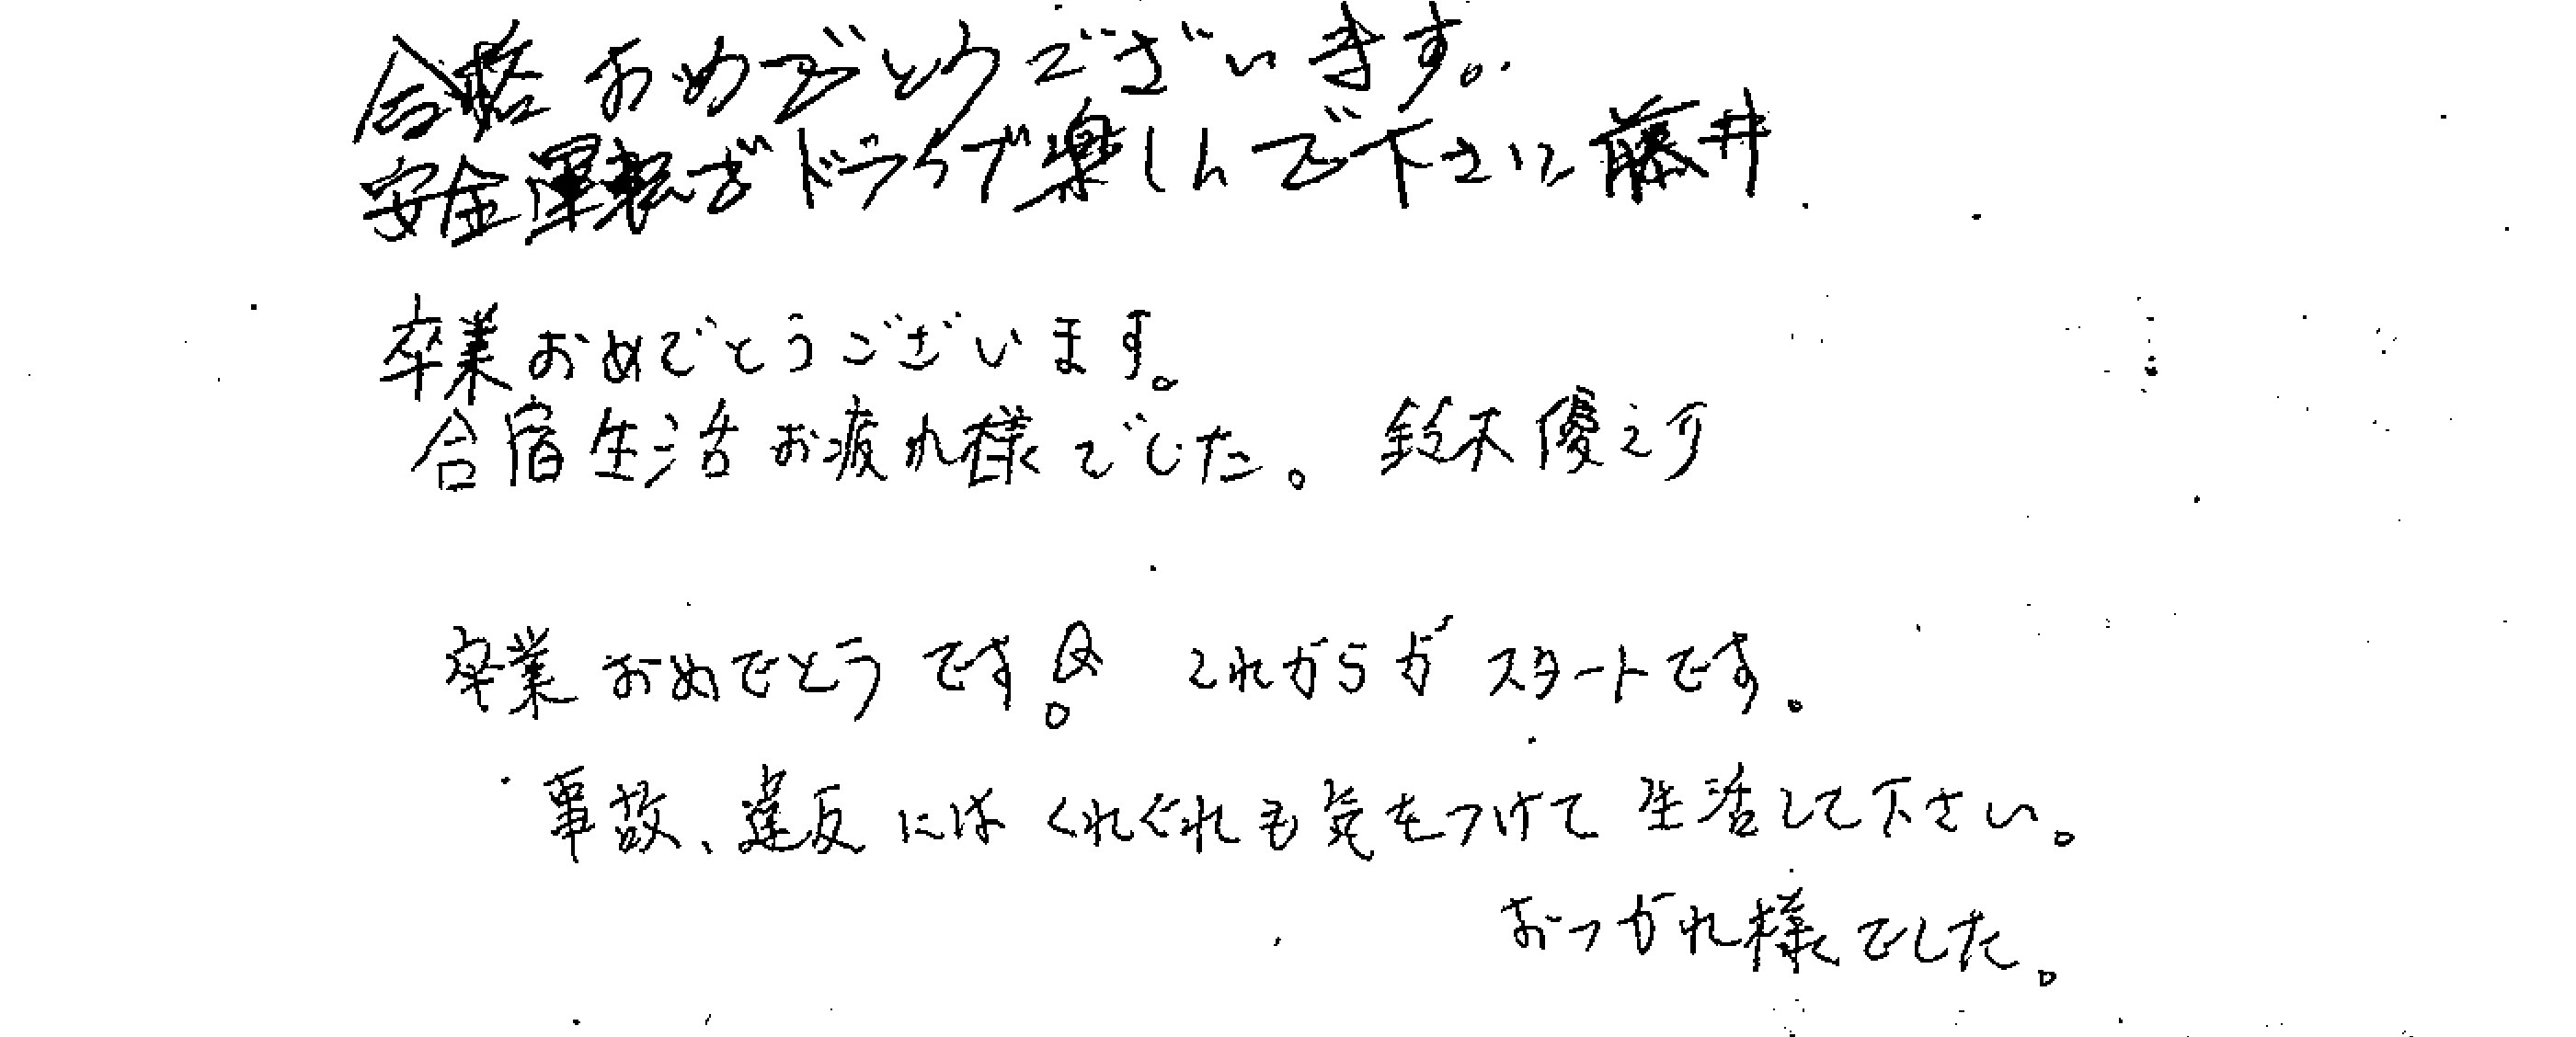 合格おめでとうございます。
安全運転でドライブ楽しんで下さい 藤井
卒業おめでとうございます。
合宿生活お疲れ様でした。 鈴木優之介
卒業おめでとうです! これからがスタートです。
事故、違反にはくれぐれも気をつけて生活して下さい。
おつかれ様でした。